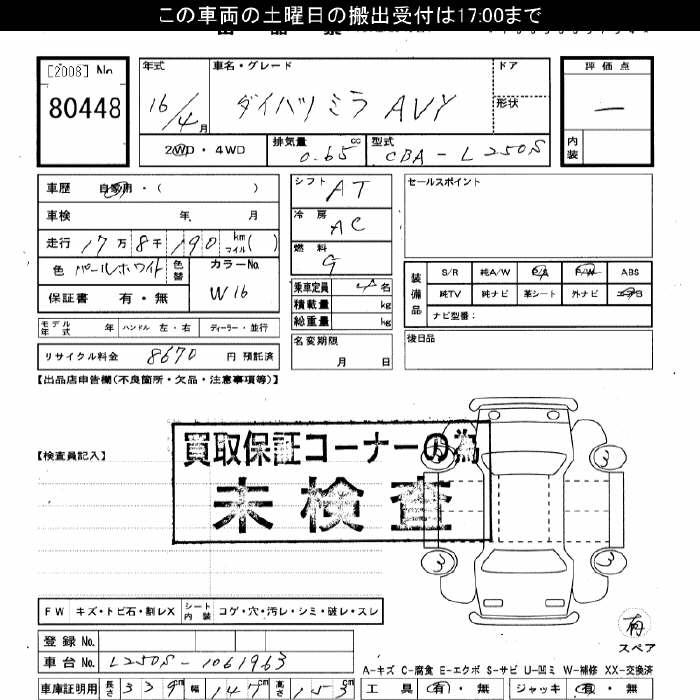 この車両の土曜日の搬出受付は17:00まで
[2008] No 80448
年式 16/4月
車名・グレード ダイハツ ミラ AVY
ドア
形状
2WD・4WD
排気量 0.65 cc
型式 CBA-L250S
評価点 —
内装
車歴 自家用・( )
車検 年 月
走行 17万8千190 km マイル( )
色 パールホワイト 色替
カラーNo. W16
保証書 有・無
モデル年式 年 ハンドル 左・右 ディーラー・並行
リサイクル料金 8670 円 預託済
シフト AT
冷房 AC
燃料 G
乗車定員 4 名
積載量 kg
総重量 kg
名変期限 月 日
セールスポイント
装備品 S/R 純A/W P/S P/W ABS
純TV 純ナビ 革シート 外ナビ エアB
ナビ型番:
後日品
【出品店申告欄(不良箇所・欠品・注意事項等)】
【検査員記入】
買取保証コーナーの為
未検査
3 3 3
FW キズ・トビ石・割レX シート内装 コゲ・穴・汚レ・シミ・破レ・スレ
登録 No.
車台 No. L250S-1061963
車庫証明用 長さ 339cm 幅 147cm 高さ 153cm
有 スペア
A-キズ C-腐食 E-エクボ S-サビ U-凹ミ W-補修 XX-交換済
工具 有・無 ジャッキ 有・無